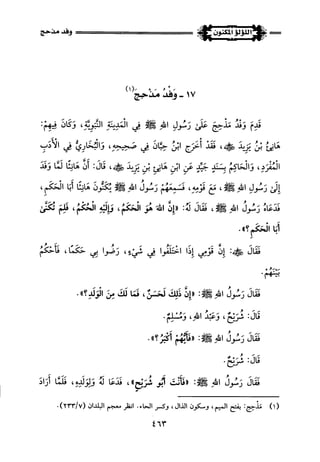 اللؤلؤ المكنون
وفد مذحج
١٧ - وَفْدُ مَذْحِجٍ(١)
قَدِمَ وَفْدُ مَذْحِجَ عَلَى رَسُولِ اللهِ ﷺ فِي الْمَدِينَةِ النَّبَوِيَّةِ، وَكَانَ فِيهِمْ:
هَانِئُ بْنُ يَزِيدَ ﷺ، فَقَدْ أَخْرَجَ ابْنُ حِبَّانَ فِي صَحِيحِهِ، وَالْبُخَارِيُّ فِي الْأَدَبِ
الْمُفْرَدِ، وَالْحَاكِمُ بِسَنَدٍ جَيِّدٍ عَنِ ابْنِ هَانِئِ بْنِ يَزِيدَ ﷺ، قَالَ: أَنَّ هَانِئًا لَمَّا وَفَدَ
إِلَى رَسُولِ اللهِ ﷺ، مَعَ قَوْمِهِ، فَسَمِعَهُمْ رَسُولُ اللهِ ﷺ يُكَنُّونَ هَانِئًا أَبَا الْحَكَمِ،
فَدَعَاهُ رَسُولُ اللهِ ﷺ، فَقَالَ لَهُ: «إِنَّ اللهَ هُوَ الْحَكَمُ، وَإِلَيْهِ الْحُكْمُ، فَلِمَ تُكَنَّى
أَبَا الْحَكَمِ؟».
فَقَالَ ﷺ: إِنَّ قَوْمِي إِذَا اخْتَلَفُوا فِي شَيْءٍ، رَضُوا بِي حَكَمًا، فَأَحْكُمُ
بَيْنَهُمْ.
فَقَالَ رَسُولُ اللهِ ﷺ: «إِنَّ ذَلِكَ لَحَسَنٌ، فَمَا لَكَ مِنَ الْوَلَدِ؟».
قَالَ: شُرَيْحٌ، وَعَبْدُ اللهِ، وَمُسْلِمٌ.
فَقَالَ رَسُولُ اللهِ ﷺ: «فَأَيُّهُمْ أَكْبَرُ؟».
قَالَ: شُرَيْحٌ.
فَقَالَ رَسُولُ اللهِ ﷺ: «فَأَنْتَ أَبُو شُرَيْحٍ»، فَدَعَا لَهُ وَلِوَلَدِهِ، فَلَمَّا أَرَادَ
(١) مَذْحِج: بفتح الميم، وسكون الذال، وكسر الحاء. انظر معجم البلدان (٢٣٣/٧).
٤٦٣